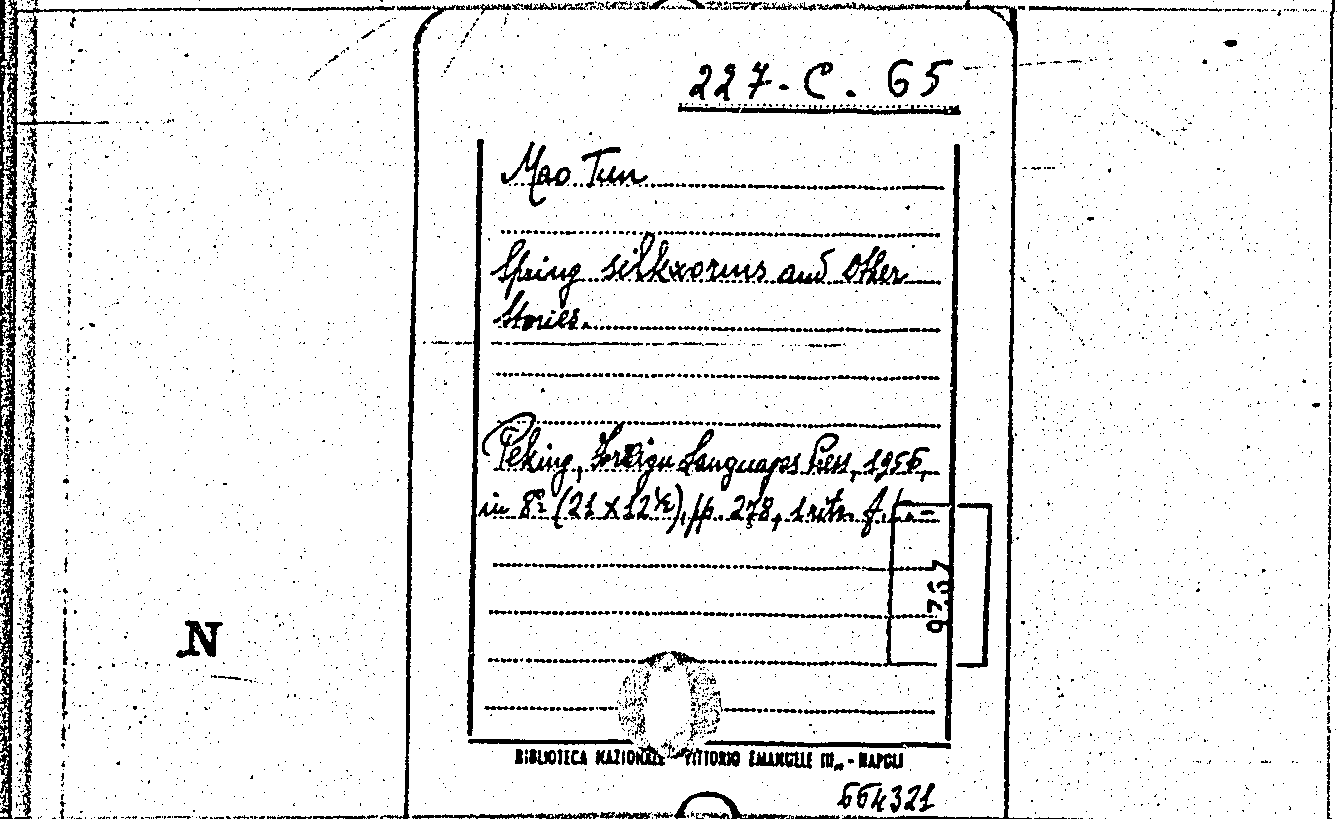 227. C. 65
Mao Tun
Spring silkworms and Other
Stories.
Peking, Foreign Languages Press, 1956,
in 8º (21 x 12½), pp. 278, 1 ritr. f.t. -
9767
N
BIBLIOTECA NAZIONALE "VITTORIO EMANUELE III" - NAPOLI
664321